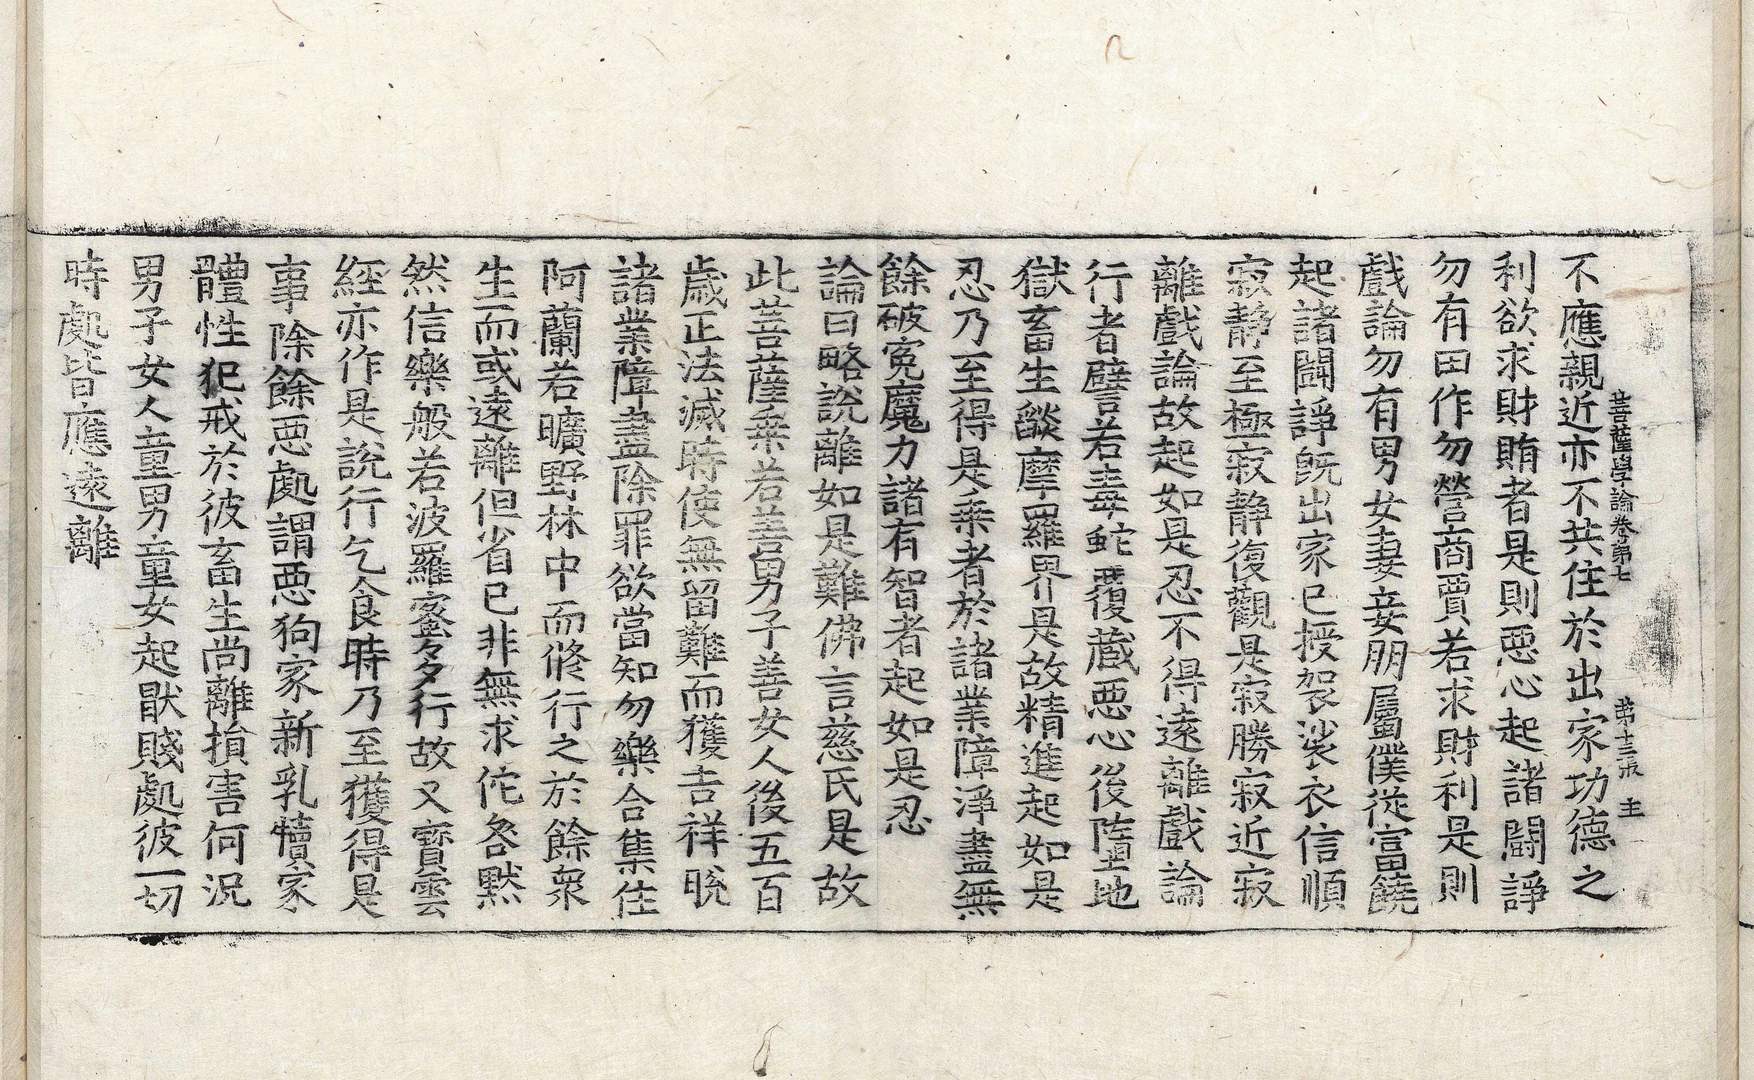 菩薩學論卷第七　第十三張　主
不應親近亦不共住於出家功德之
利欲求財賄者是則惡心起諸鬪諍
勿有田作勿營商賈若求財利是則
戲論勿有男女妻妾朋屬僕從富饒
起諸鬪諍旣出家已授袈裟衣信順
寂静至極寂静復觀是寂勝寂近寂
離戲論故起如是忍不得遠離戲論
行者譬若毒蛇覆藏惡心後墮地
獄畜生燄摩羅界是故精進起如是
忍乃至得是乗者於諸業障淨盡無
餘破寃魔力諸有智者起如是忍
論曰略說離如是難佛言慈氏是故
此菩薩乗若善男子善女人後五百
歲正法滅時使無留難而獲吉祥晚
諸業障盡除罪欲當知勿樂合集住
阿蘭若曠野林中而修行之於餘衆
生而或遠離但省已非無求佗咎黙
然信樂般若波羅蜜多行故又寳雲
經亦作是說行乞食時乃至獲得是
事除餘惡處謂惡狗家新乳犢家
體性犯戒於彼畜生尚離損害何況
男子女人童男童女起猒賤處彼一切
時處皆應遠離